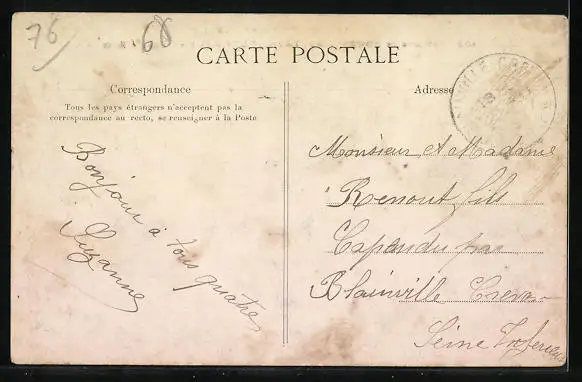 76
68
CARTE POSTALE
Correspondance
Tous les pays étrangers n'acceptent pas la
correspondance au recto, se renseigner à la Poste
Bonjour à tous quatre
Suzanne
Adresse
Monsieur et Madame
Renout fils
Capendu par
Blainville Crevon
Seine Inférieure